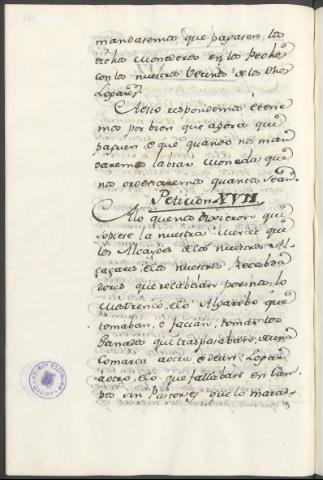 mandasemos que pagasen, los
dichos monederos en los Pechos
con los nuestros Vecinos de los dhos
Logares.
A esto respondemos é tene
mos por bien que agora que
paguen, e que quando nos man
daremos labrar moneda que
nos ordenaremos quantos sean.
Peticion XVII
A lo que nos dixieron que
sopiese la nuestra merced que
los Alcaydes de los nuestros Al
cazares, e los nuestros Recabda
dores que recabdan por nos lo
mostrenco, e lo Algaribo que
tomaban, e facian, tomar los
Ganados que traspasaban, de una
Comarca a otra e de un Logar
a otro, e lo que fallaban en cam
po sin Pastores que lo manda